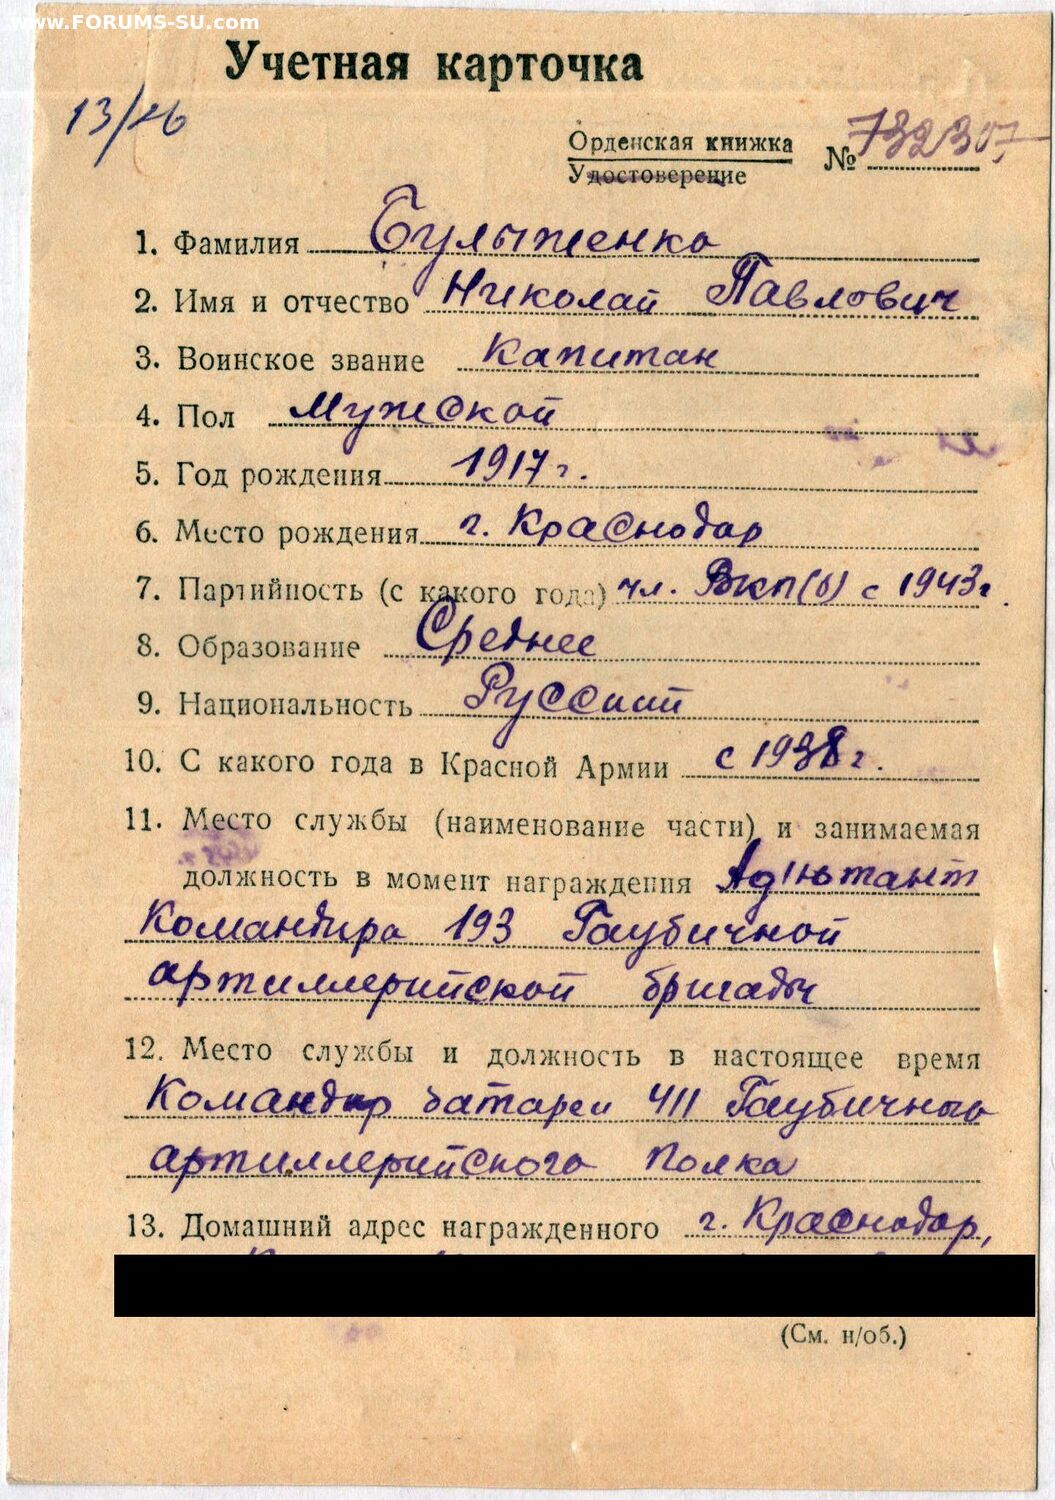 www.FORUMS-SU.com
Учетная карточка
13/
Орденская книжка
Удостоверение
№ 732307
1. Фамилия Булыженко
2. Имя и отчество Николай Павлович
3. Воинское звание Капитан
4. Пол Мужской
5. Год рождения 1917 г.
6. Место рождения г. Краснодар
7. Партийность (с какого года) чл. ВКП(б) с 1943 г.
8. Образование Среднее
9. Национальность Русский
10. С какого года в Красной Армии с 1938 г.
11. Место службы (наименование части) и занимаемая
должность в момент награждения Адъютант
Командира 193 Гаубичной
артиллерийской бригады
12. Место службы и должность в настоящее время
Командир батареи 411 Гаубичного
артиллерийского Полка
13. Домашний адрес награжденного г. Краснодар,
(См. н/об.)